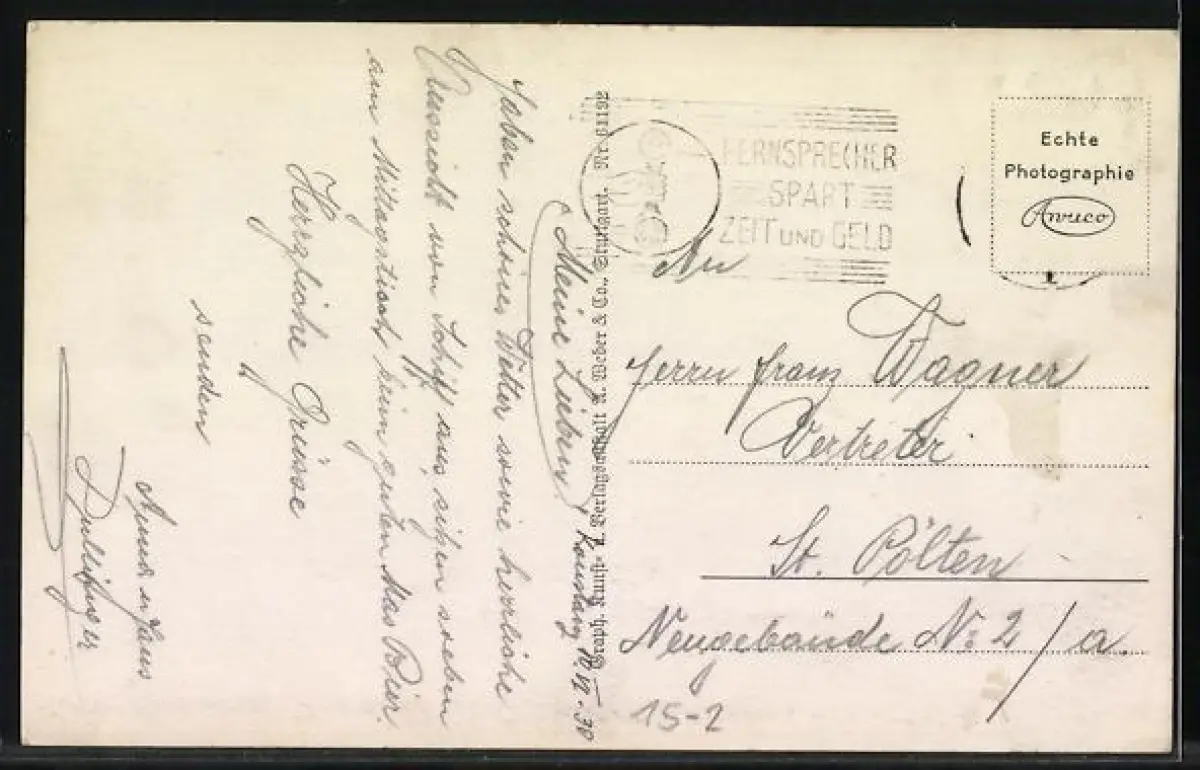 Meine Lieben! Konstanz 10. VI. 30
Haben schönes Wetter sowie herrliche
Aussicht vom Schiff aus, sitzen soeben
am Mittagstisch beim guten Mas Bier.
Herzliche Grüsse
senden
u. Hans
Graph. Kunst- u. Verlagsanstalt A. Weber & Co., Stuttgart. Nr.
FERNSPRECHER
SPART
ZEIT UND GELD
Echte
Photographie
Awuco
An
Herrn Franz Wagner
Vertreter
St. Pölten
Neugebäude No 2/a.
15-2